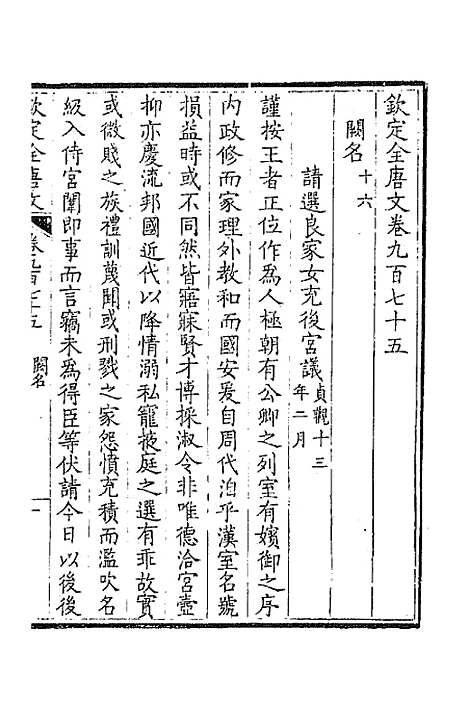 欽定全唐文卷九百七十五
闕名十六
請選良家女充後宮議貞觀十三年二月
謹按王者正位作為人極朝有公卿之列室有嬪御之序
內政修而家理外教和而國安爰自周代洎乎漢室名號
損益時或不同然皆寤寐賢才博採淑令非唯德洽宮壼
抑亦慶流邦國近代以降情溺私寵掖庭之選有乖故實
或微賤之族禮訓蔑聞或刑戮之家怨憤充積而濫吹名
級入侍宮闈即事而言竊未為得臣等伏請今日以後後
欽定全唐文 卷九百七十五 闕名 一